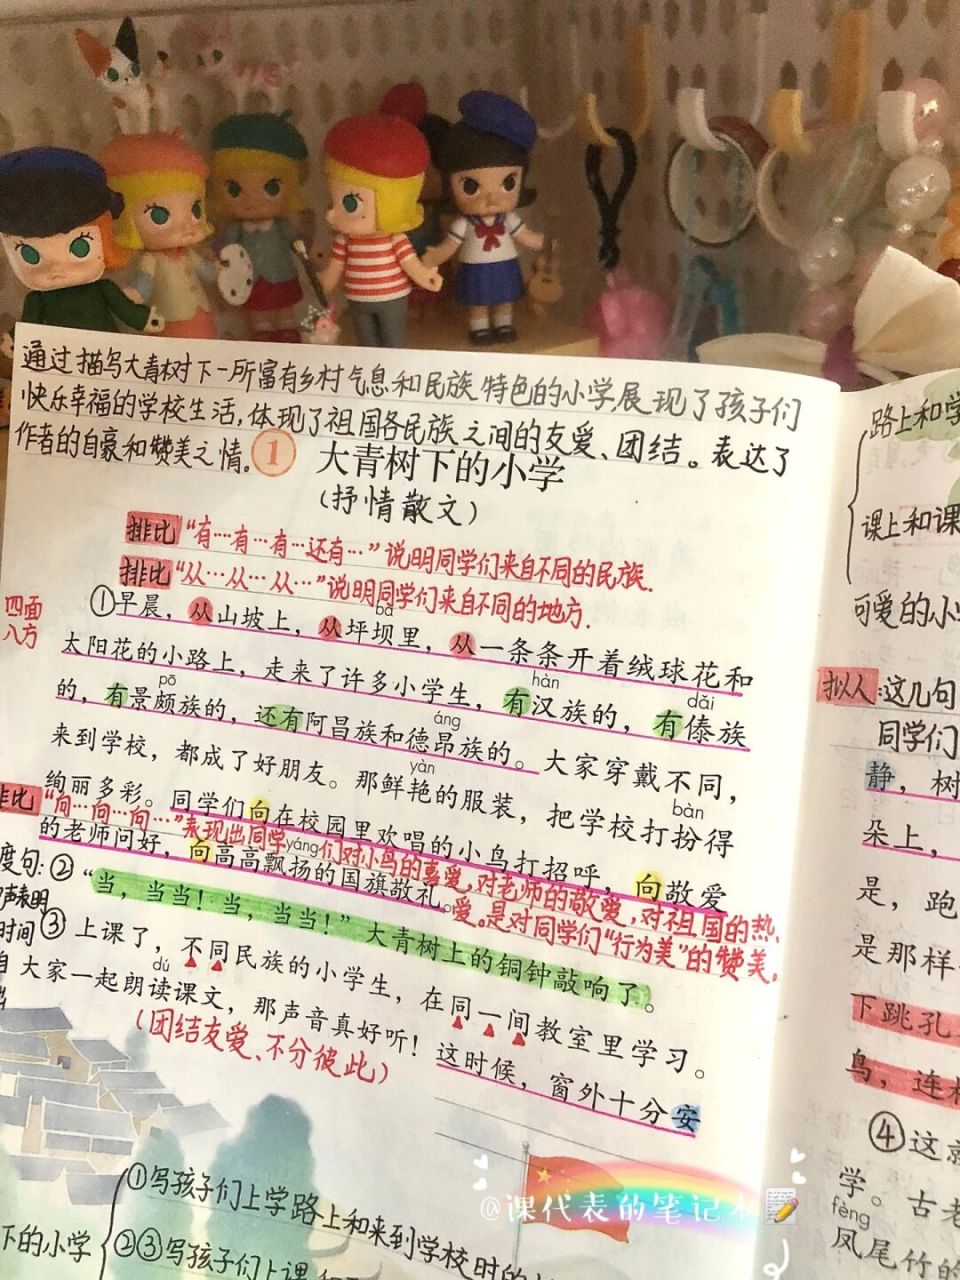 通过描写大青树下一所富有乡村气息和民族特色的小学,展现了孩子们
快乐幸福的学校生活,体现了祖国各民族之间的友爱、团结。表达了
作者的自豪和赞美之情。
① 大青树下的小学
(抒情散文)
排比 “有…有…有…还有…”说明同学们来自不同的民族.
排比 “从…从…从…”说明同学们来自不同的地方.
四面
八方
bà
①早晨，从山坡上，从坪坝里，从一条条开着绒球花和
太阳花的小路上，走来了许多小学生，有汉族的，有傣族
pō hàn dǎi
的，有景颇族的，还有阿昌族和德昂族的。大家穿戴不同，
áng
来到学校，都成了好朋友。那鲜艳的服装，把学校打扮得
yàn bàn
绚丽多彩。同学们向在校园里欢唱的小鸟打招呼，向敬爱
排比 “向…向…向…”表现出同学们对小鸟的喜爱,对老师的敬爱,对祖国的热
爱。是对同学们“行为美”的赞美.
yáng
的老师问好，向高高飘扬的国旗敬礼。
度句:② “当，当当！当，当当！”大青树上的铜钟敲响了。
声表明
时间
③ 上课了，不同民族的小学生，在同一间教室里学习。
dú
大家一起朗读课文，那声音真好听！这时候，窗外十分安
(团结友爱、不分彼此)
①写孩子们上学路上和来到学校时的
下的小学
②③写孩子们上课
路上和学
课上和课
可爱的小
拟人:这几句
同学们
静，树
朵上，
是，跑
是那样
下跳孔
鸟，连
④这就
学。古老
fèng
凤尾竹的
@课代表的笔记本